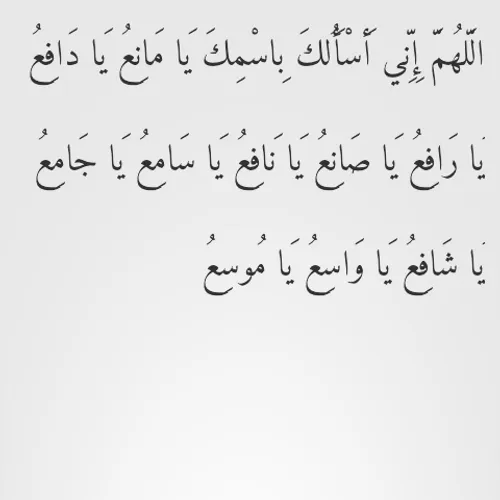 اللَّهُمَّ إِنِّي أَسْأَلُكَ بِاسْمِكَ يَا مَانِعُ يَا دَافِعُ
يَا رَافِعُ يَا صَانِعُ يَا نَافِعُ يَا سَامِعُ يَا جَامِعُ
يَا شَافِعُ يَا وَاسِعُ يَا مُوسِعُ